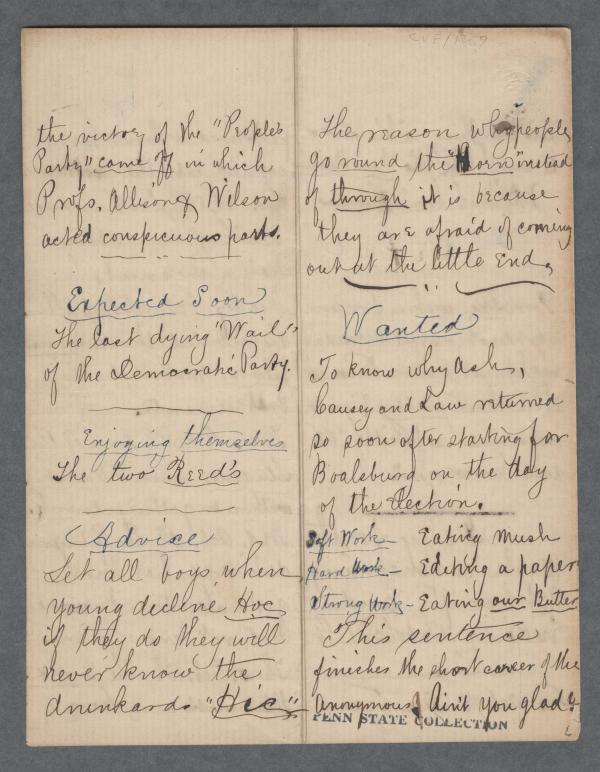 the victory of the "People's
Party" came off in which
Profs. Allison & Wilson
acted conspicuous parts.
Expected Soon
The last dying 'Wail'
of the Democratic Party.
Enjoying themselves
The two Reed's
Advice
Let all boys when
young decline Hoc
if they do they will
never know the
drunkards "Hic"
The reason why people
go round the "Horn" instead
of through it is because
they are afraid of coming
out at the little End.
Wanted
To know why Ash,
Causey and Law returned
so soon after starting for
Boalsburg on the day
of the Election.
Soft Work - Eating Mush
Hard Work - Editing a paper
Strong Work - Eating our Butter
This sentence
finishes the short career of the
Anonymous. Ain't you glad?
PENN STATE COLLECTION